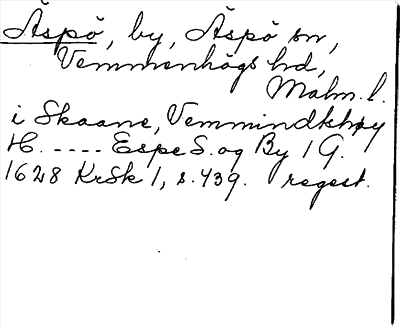 Äspö, by, Äspö sn,
Vemmenhögs hd,
Malm. l.
i Skaane, Vemmindkhøy
H. ----- Espe S. og By 1 G.
1628 KrSk 1, s. 439. regest.